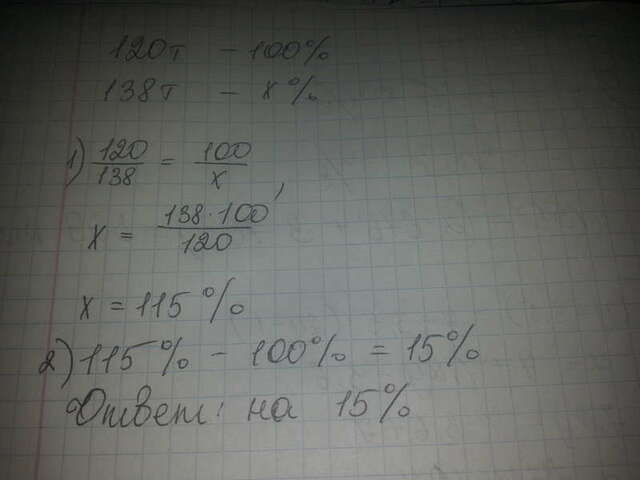 120т - 100%
138т - x%
1) 120/138 = 100/x,
x = 138·100/120
x = 115%
2) 115% - 100% = 15%
Ответ: на 15%